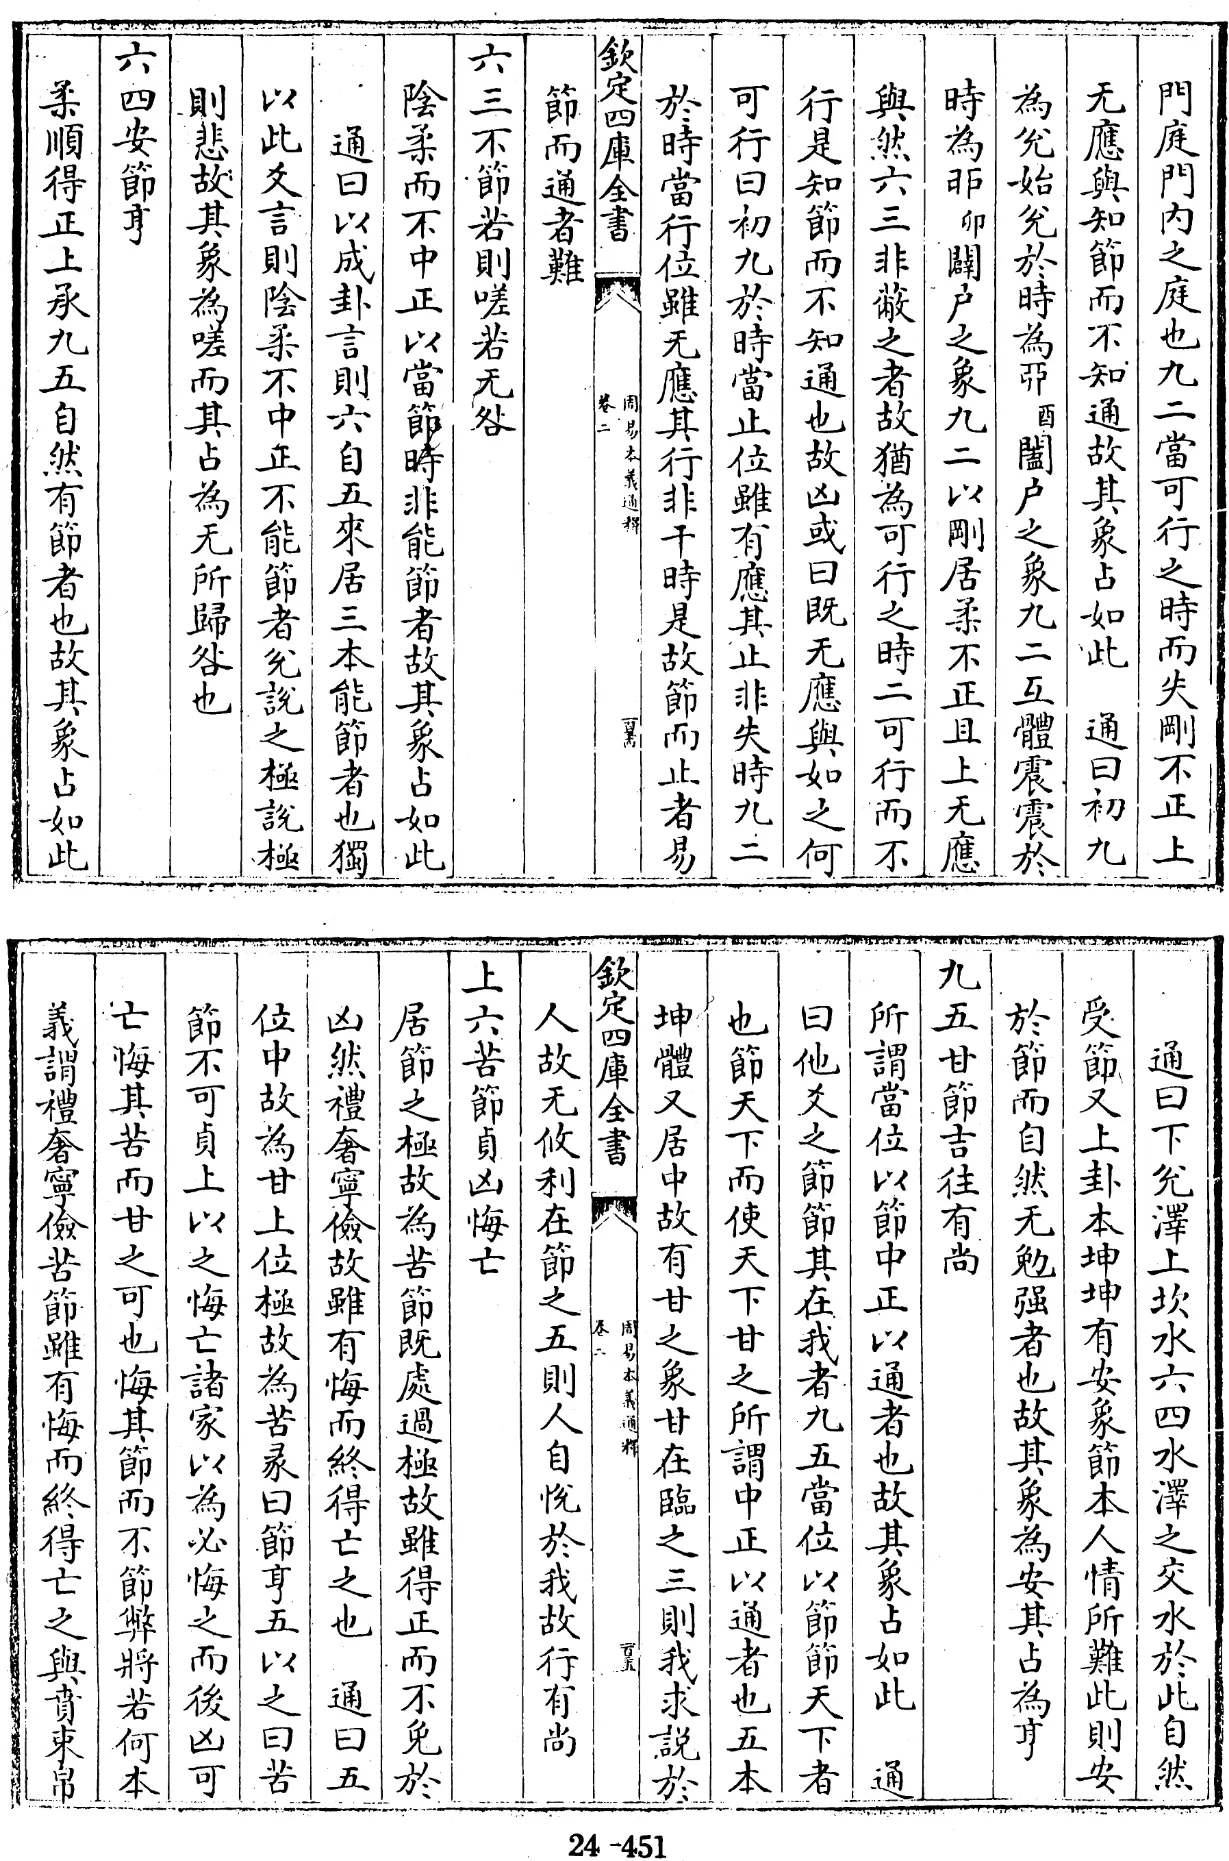 門庭門内之庭也九二當可行之時而失剛不正上
无應與知節而不知通故其象占如此　通曰初九
為兌始兌於時為丣酉闔户之象九二互體震震於
時為戼卯闢户之象九二以剛居柔不正且上无應
與然六三非蔽之者故猶為可行之時二可行而不
行是知節而不知通也故凶或曰既无應與如之何
可行曰初九於時當止位雖有應其止非失時九二
於時當行位雖无應其行非干時是故節而止者易
欽定四庫全書
周易本義通釋
卷二
節而通者難
六三不節若則嗟若无咎
陰柔而不中正以當節時非能節者故其象占如此
通曰以成卦言則六自五來居三本能節者也獨
以此爻言則陰柔不中正不能節者兌說之極說極
則悲故其象為嗟而其占為无所歸咎也
六四安節亨
柔順得正上承九五自然有節者也故其象占如此
通曰下兌澤上坎水六四水澤之交水於此自然
受節又上卦本坤坤有安象節本人情所難此則安
於節而自然无勉强者也故其象為安其占為亨
九五甘節吉往有尚
所謂當位以節中正以通者也故其象占如此　通
曰他爻之節節其在我者九五當位以節節天下者
也節天下而使天下甘之所謂中正以通者也五本
坤體又居中故有甘之象甘在臨之三則我求說於
欽定四庫全書
周易本義通釋
卷二
人故无攸利在節之五則人自悅於我故行有尚
上六苦節貞凶悔亡
居節之極故為苦節既處過極故雖得正而不免於
凶然禮奢寧儉故雖有悔而終得亡之也　通曰五
位中故為甘上位極故為苦彖曰節亨五以之曰苦
節不可貞上以之悔亡諸家以為必悔之而後凶可
亡悔其苦而甘之可也悔其節而不節弊將若何本
義謂禮奢寧儉苦節雖有悔而終得亡之與賁束帛
24-451